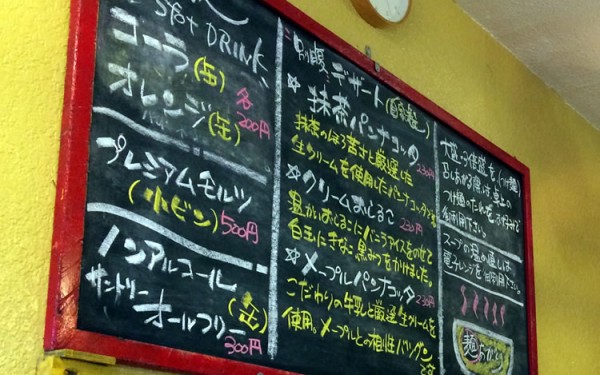 Soft DRINK
コーラ(缶)
オレンジ(缶)
各
200円
プレミアムモルツ
(小ビン) 500円
ノンアルコール
サントリー (缶)
オールフリー
300円
別腹デザート(自家製)
☆抹茶パンナコッタ 230円
抹茶のほろ苦さと厳選した
生クリームを使用したパンナコッタです
☆クリームおしるこ 230円
温かいおしるこにバニラアイスをのせて
白玉にきなこ黒みつをかけました。
☆メープルパンナコッタ 230円
こだわりの牛乳と厳選生クリームを
使用。メープルとの相性バツグン
です
つけ麺のたれをお好みで
御利用下さい。
スープの温め直しは
電子レンジを御利用下さい。